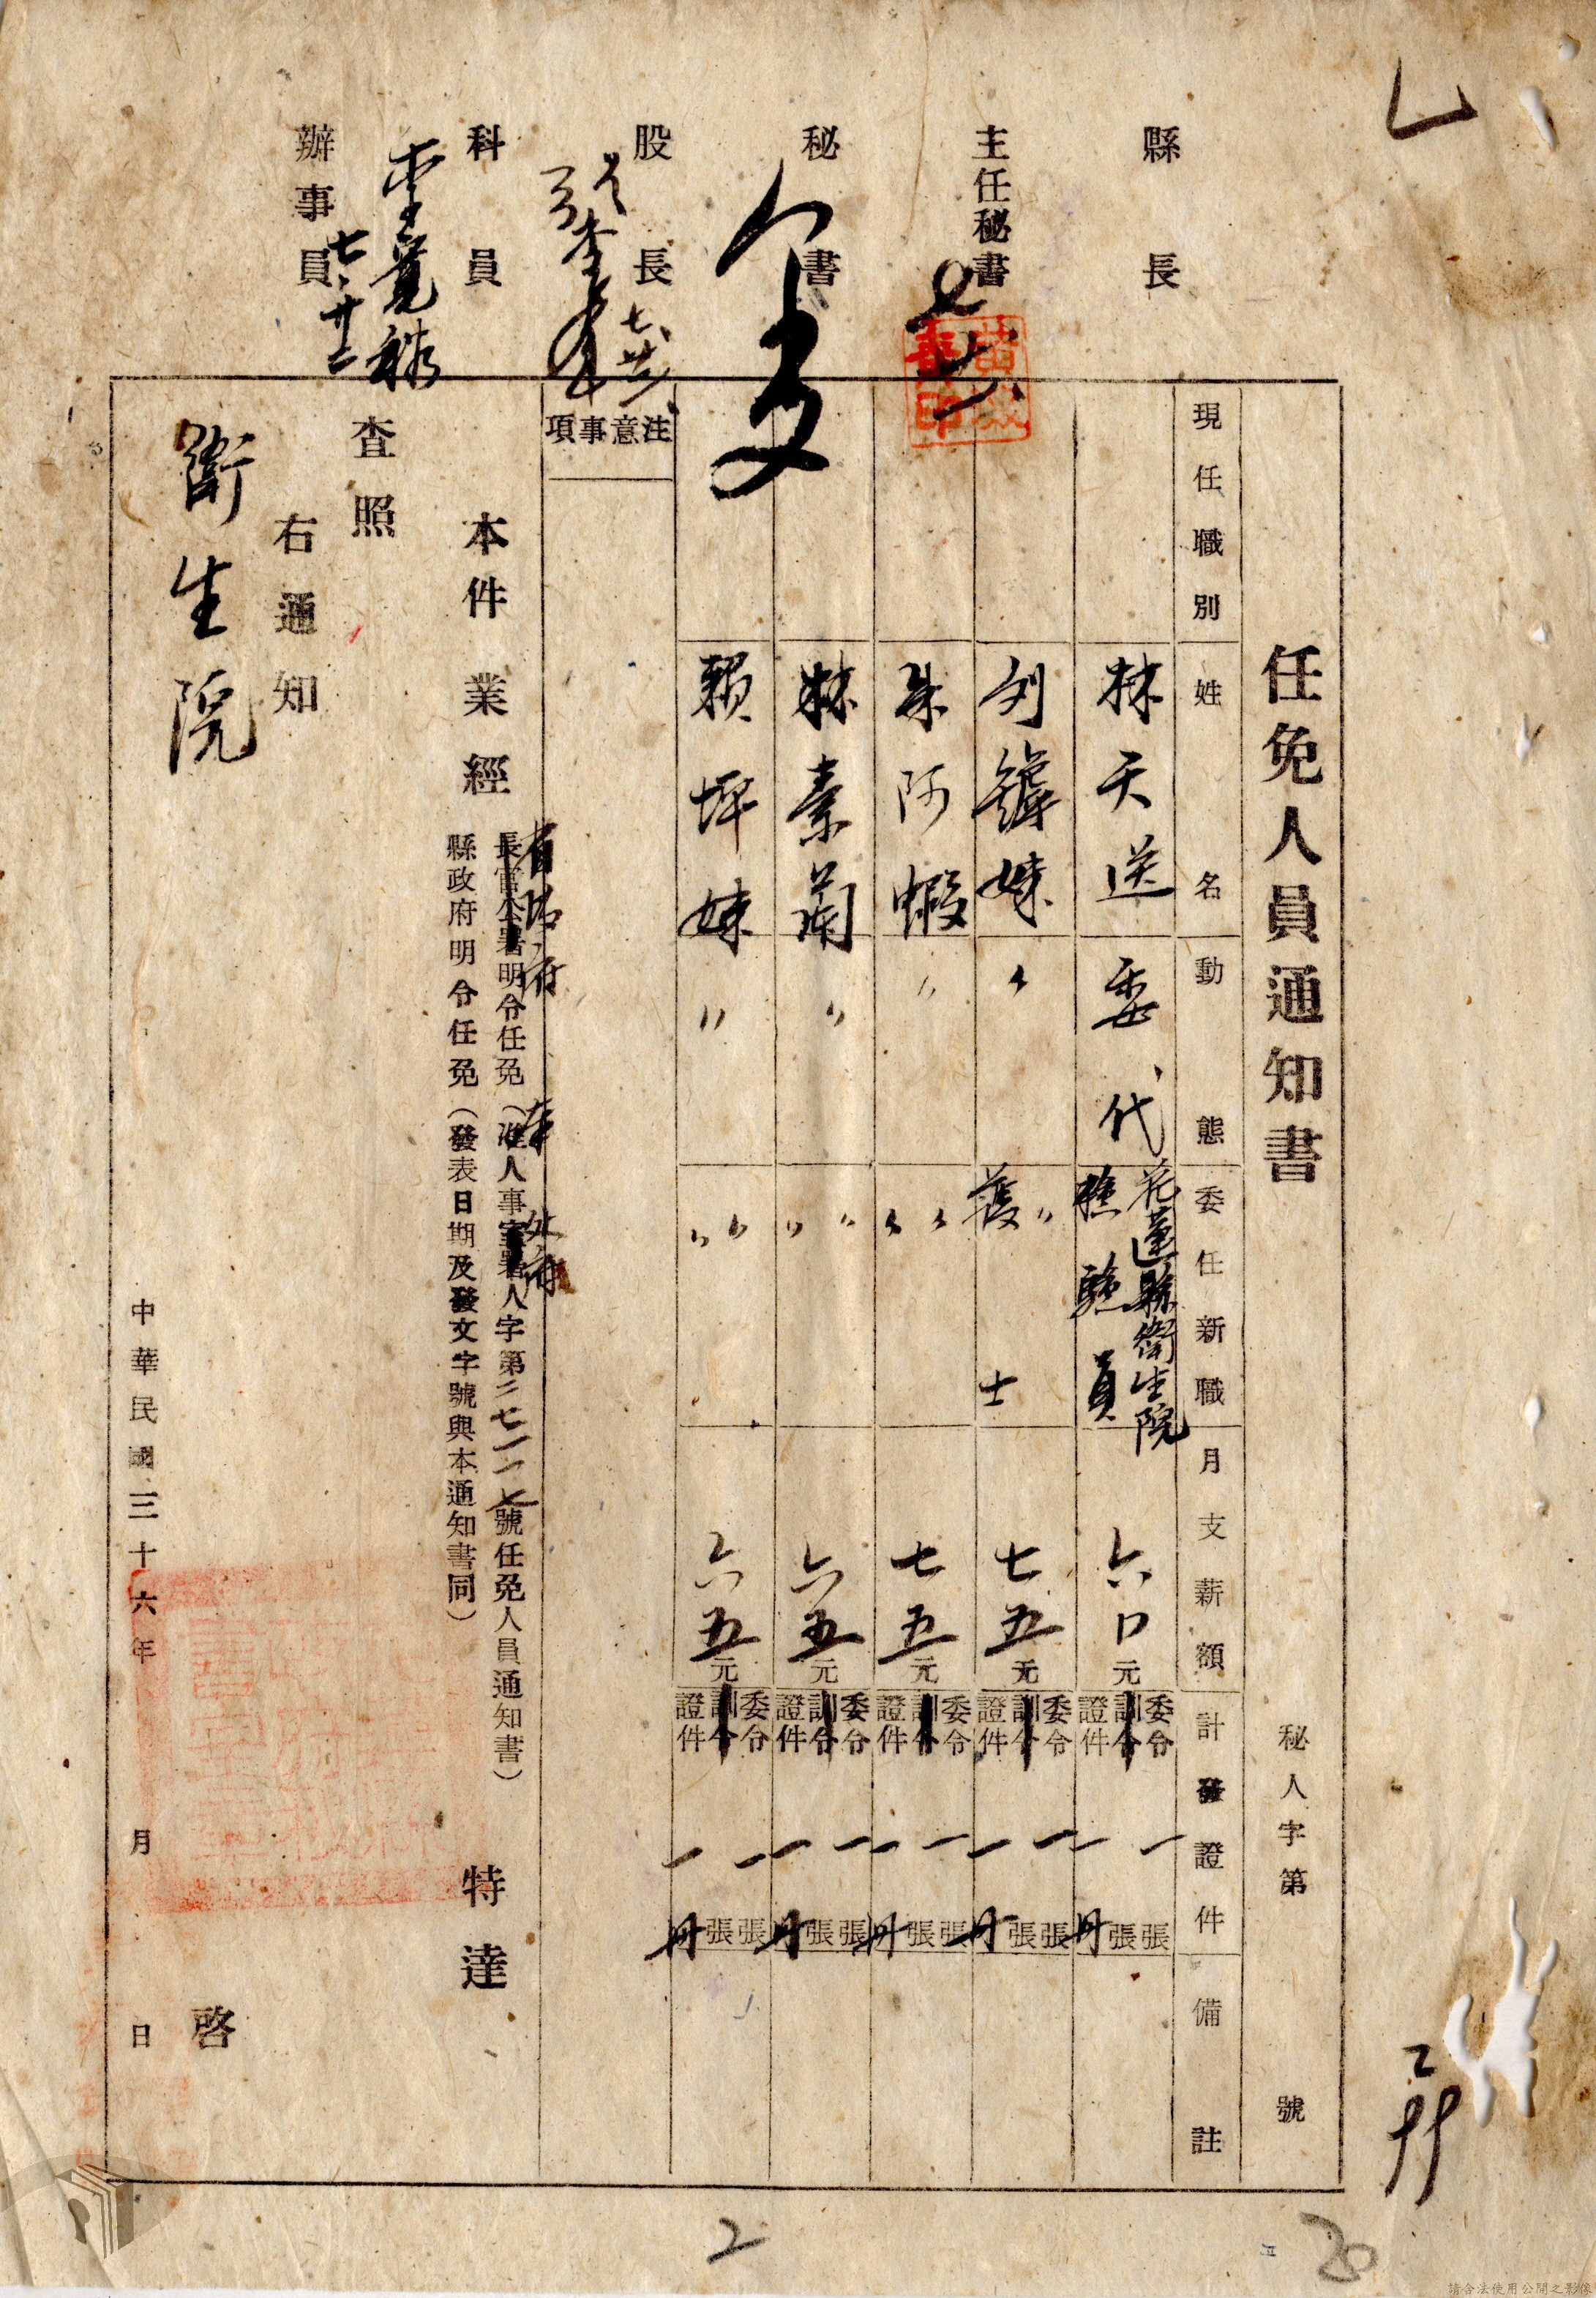 縣長
主任秘書
秘書
股長
科員
辦事員
七、廿二
任免人員通知書
秘人字第 號
現任職別 姓名 動態 委任新職 月支薪額 計發證件 備註
林天送 委代 花蓮縣衛生院 檢驗員 六〇元 委令一張 訓令張 證件一冊
妹 〃 〃 護士 七五元 委令一張 訓令張 證件一冊
朱阿蝦 〃 〃 〃 七五元 委令一張 訓令張 證件一冊
林素蘭 〃 〃 〃 六五元 委令一張 訓令張 證件一冊
賴坪妹 〃 〃 〃 六五元 委令一張 訓令張 證件一冊
注意事項
本件業經
長官公署明令任免(准人事室署人字第二七一一七號任免人員通知書)
省政府 府
縣政府明令任免(發表日期及發文字號與本通知書同)
特達
查照
右通知
衛生院
啓
中華民國三十六年 月 日
2
20
請合法使用公開之影像